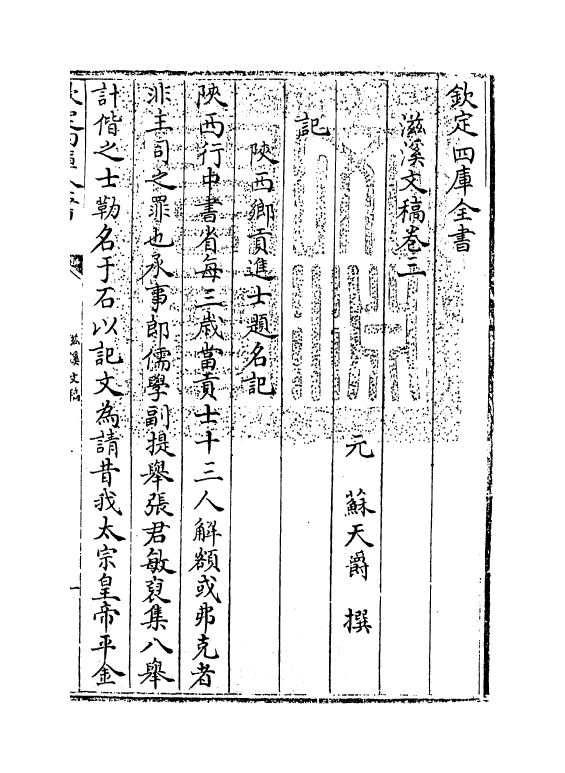 欽定四庫全書
滋溪文稿卷二
元 蘇天爵 撰
記
陜西鄉貢進士題名記
陜西行中書省每三歳當貢士十三人解額或弗克者
非主司之罪也承事郎儒學副提舉張君敏裒集八舉
計偕之士勒名于石以記文為請昔我太宗皇帝平金
欽定四庫全書
滋溪文稿
一